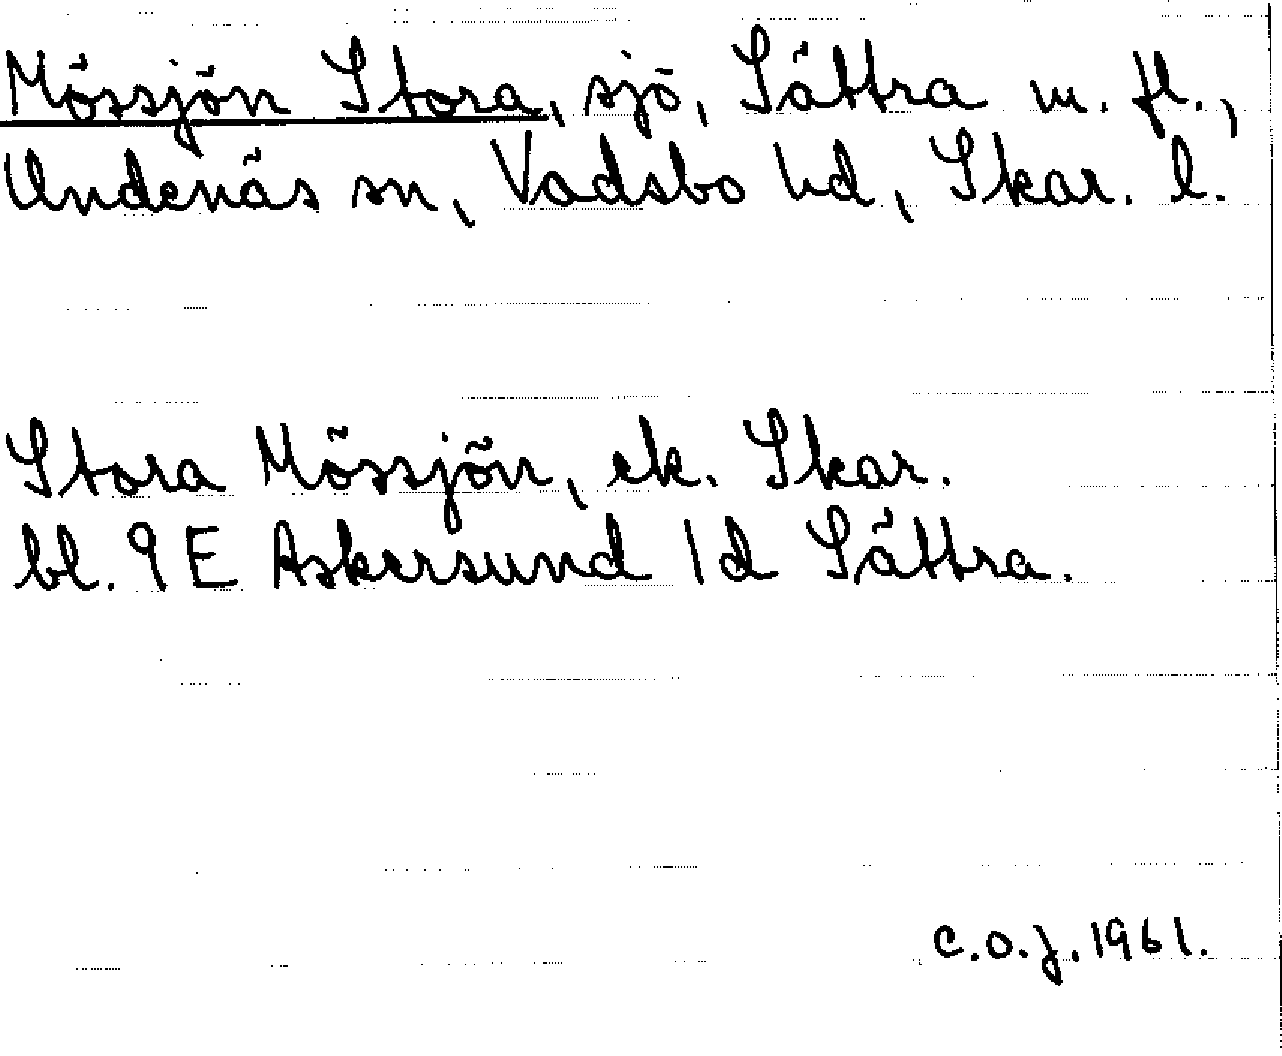 Mössjön Stora, sjö, Sättra m. fl.,
Undenäs sn, Vadsbo hd, Skar. l.
Stora Mössjön, ek. Skar.
bl. 9 E Askersund 1 d Sättra.
C.O.J. 1961.